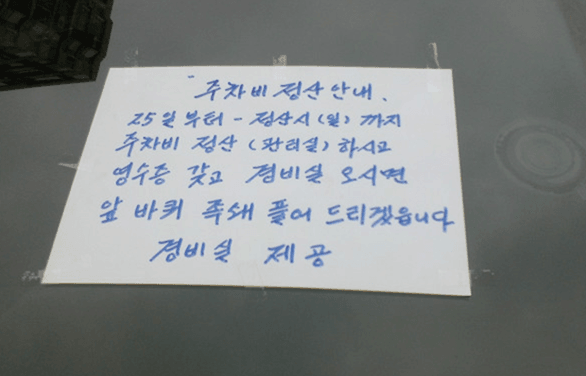 주차비 정산 안내.
25일 부터 - 정산시 (일) 까지
주차비 정산 (관리실) 하시고
영수증 갖고 경비실 오시면
앞 바퀴 족쇄 풀어 드리겠읍니다
경비실 제공